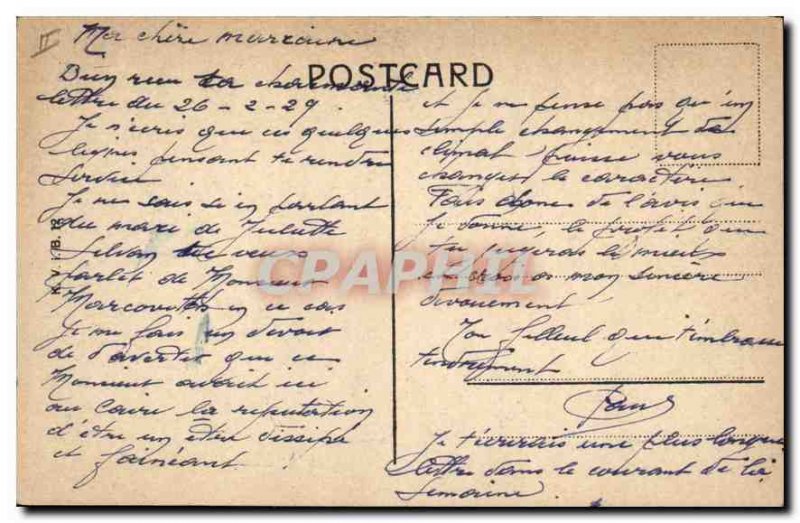 II
Ma chère marraine
POSTCARD
Bien reçu ta charmante
lettre du 26-2-29.
Je t'écris que ces quelques
lignes pensant te rendre
service
Je ne sais si en parlant
du mari de Juliette
Silvan tu veux
parler de Monsieur
Marcovitch en ce cas
je me fais un devoir
de t'avertir que ce
Monsieur avait ici
au Caire la réputation
d'être un être dissipé
et fainéant.
et je ne pense pas qu'un
simple changement de
climat puisse vous
changer le caractère
Fais donc de l'avis que
je donne, le profit que
tu jugeras le mieux
en mon sincère
dévouement
Ton filleul qui t'embrasse
tendrement
Je t'écrirais une plus longue
lettre dans le courant de la
semaine.
CPARPHIL